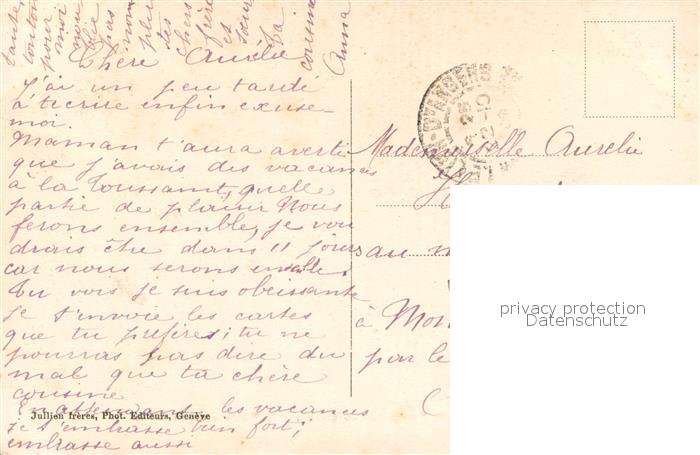 Chère Aurélie
J'ai un peu tardé
à t'ecrire enfin excuse-
moi.
Maman t'aura averti
que j'avais des vacances
à la Toussaint, quelle
partie de plaisir nous
ferons ensemble, je vou
drais être dans 11 jours
car nous serons
Tu vois je suis obeissante
je t'envoie les cartes
que tu préfères; tu ne
pourras pas dire du
mal que ta chère
cousine
En attendant les vacances
je t'embrasse bien fort;
embrasse aussi
tante,
tonton
pour
moi
pas
les
chers
et
ta
cousine
Anna
Jullien frères, Phot. Editeurs, Genève
Mademoiselle Aurélie
au
à Mon
par le
privacy protection
Datenschutz